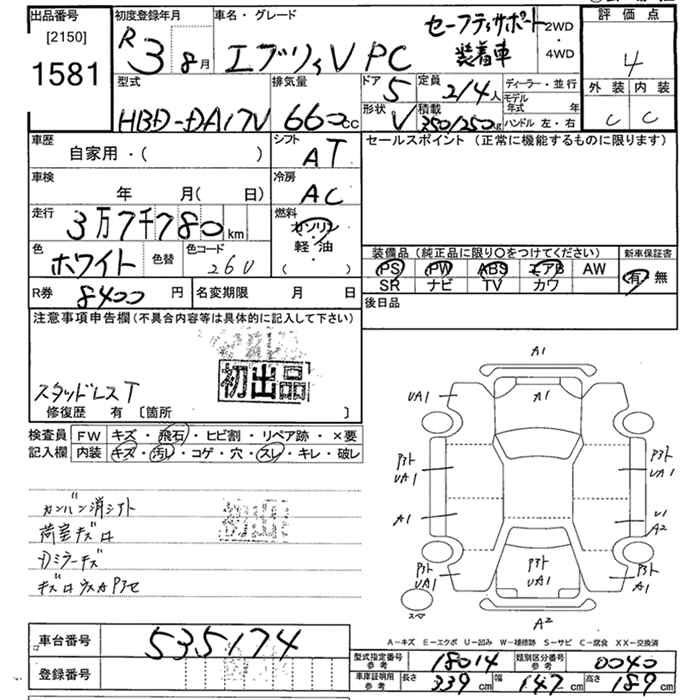 出品番号
[2150]
1581
初度登録年月
R 3 8月
車名・グレード
エブリィV PC
セーフティサポート
装着車
2WD
・
4WD
評価点
4
外装 内装
C C
型式
HBD-DA17V
排気量
660cc
ドア
5
定員
2/4人
形状
V
積載
350/250kg
ディーラー・並行
モデル年式 年
ハンドル 左・右
車歴
自家用・( )
シフト
AT
セールスポイント (正常に機能するものに限ります)
車検
年 月( 日)
冷房
AC
走行
3万7千780km
燃料
ガソリン
軽・油
( ・ )
色
ホワイト
色替
色コード
26U
装備品 (純正品に限り〇をつけてください)
PS PW ABS エアB AW
SR ナビ TV カワ
新車保証書
有・無
R券
8400円
名変期限 月 日
後日品
注意事項申告欄 (不具合内容等は具体的に記入して下さい)
初出品
スタッドレスT
修復歴 有 [箇所 ]
検査員
記入欄
FW キズ・飛石・ヒビ割・リペア跡・×要
内装 キズ・汚レ・コゲ・穴・スレ・キレ・破レ
カンバン消シアト
荷室キズロ
Dミラーキズ
A1
UA1
A1
アト
UA1
アト
UA1
A1
U1
A2
アト
UA1
アト
UA1
アト
A1
スペア
A2
A-キズ E-エクボ U-凹み W-補修跡 S-サビ C-腐食 XX-交換済
車台番号
535174
登録番号
型式指定番号
参考
18014
類別区分番号
参考
0040
車庫証明用
参考
長さ
339cm
幅
147cm
高さ
189cm